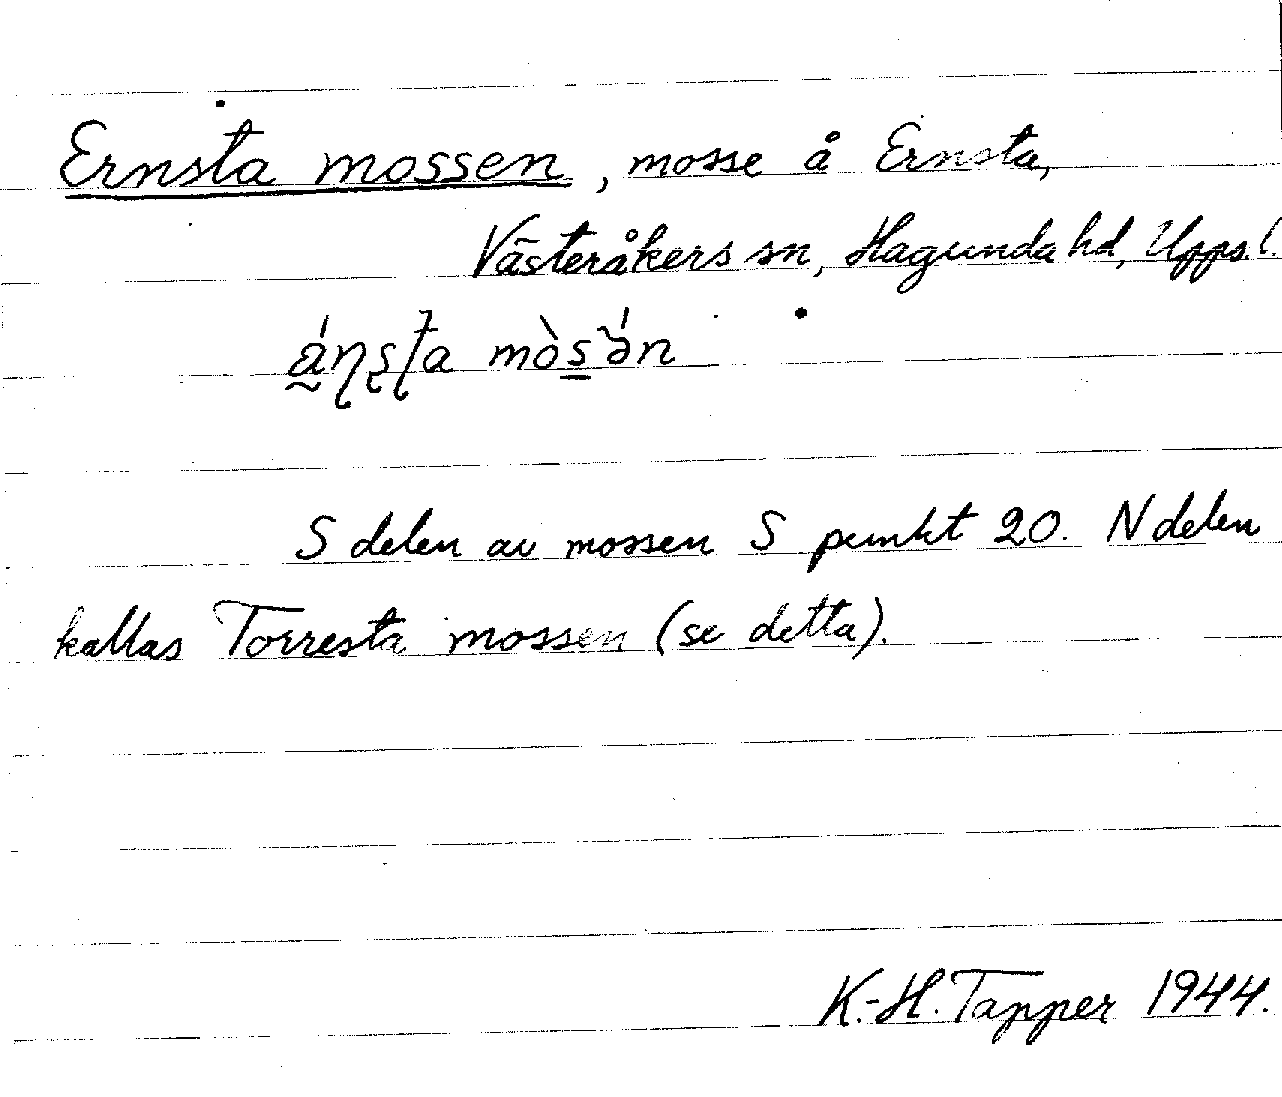 Ernsta mossen, mosse å Ernsta,
Västeråkers sn, Hagunda hd, Upps. l.
mòs̲ə̀́n
S delen av mossen S punkt 20. N delen
kallas Torresta mossen (se detta).
K.-H. Tapper 1944.